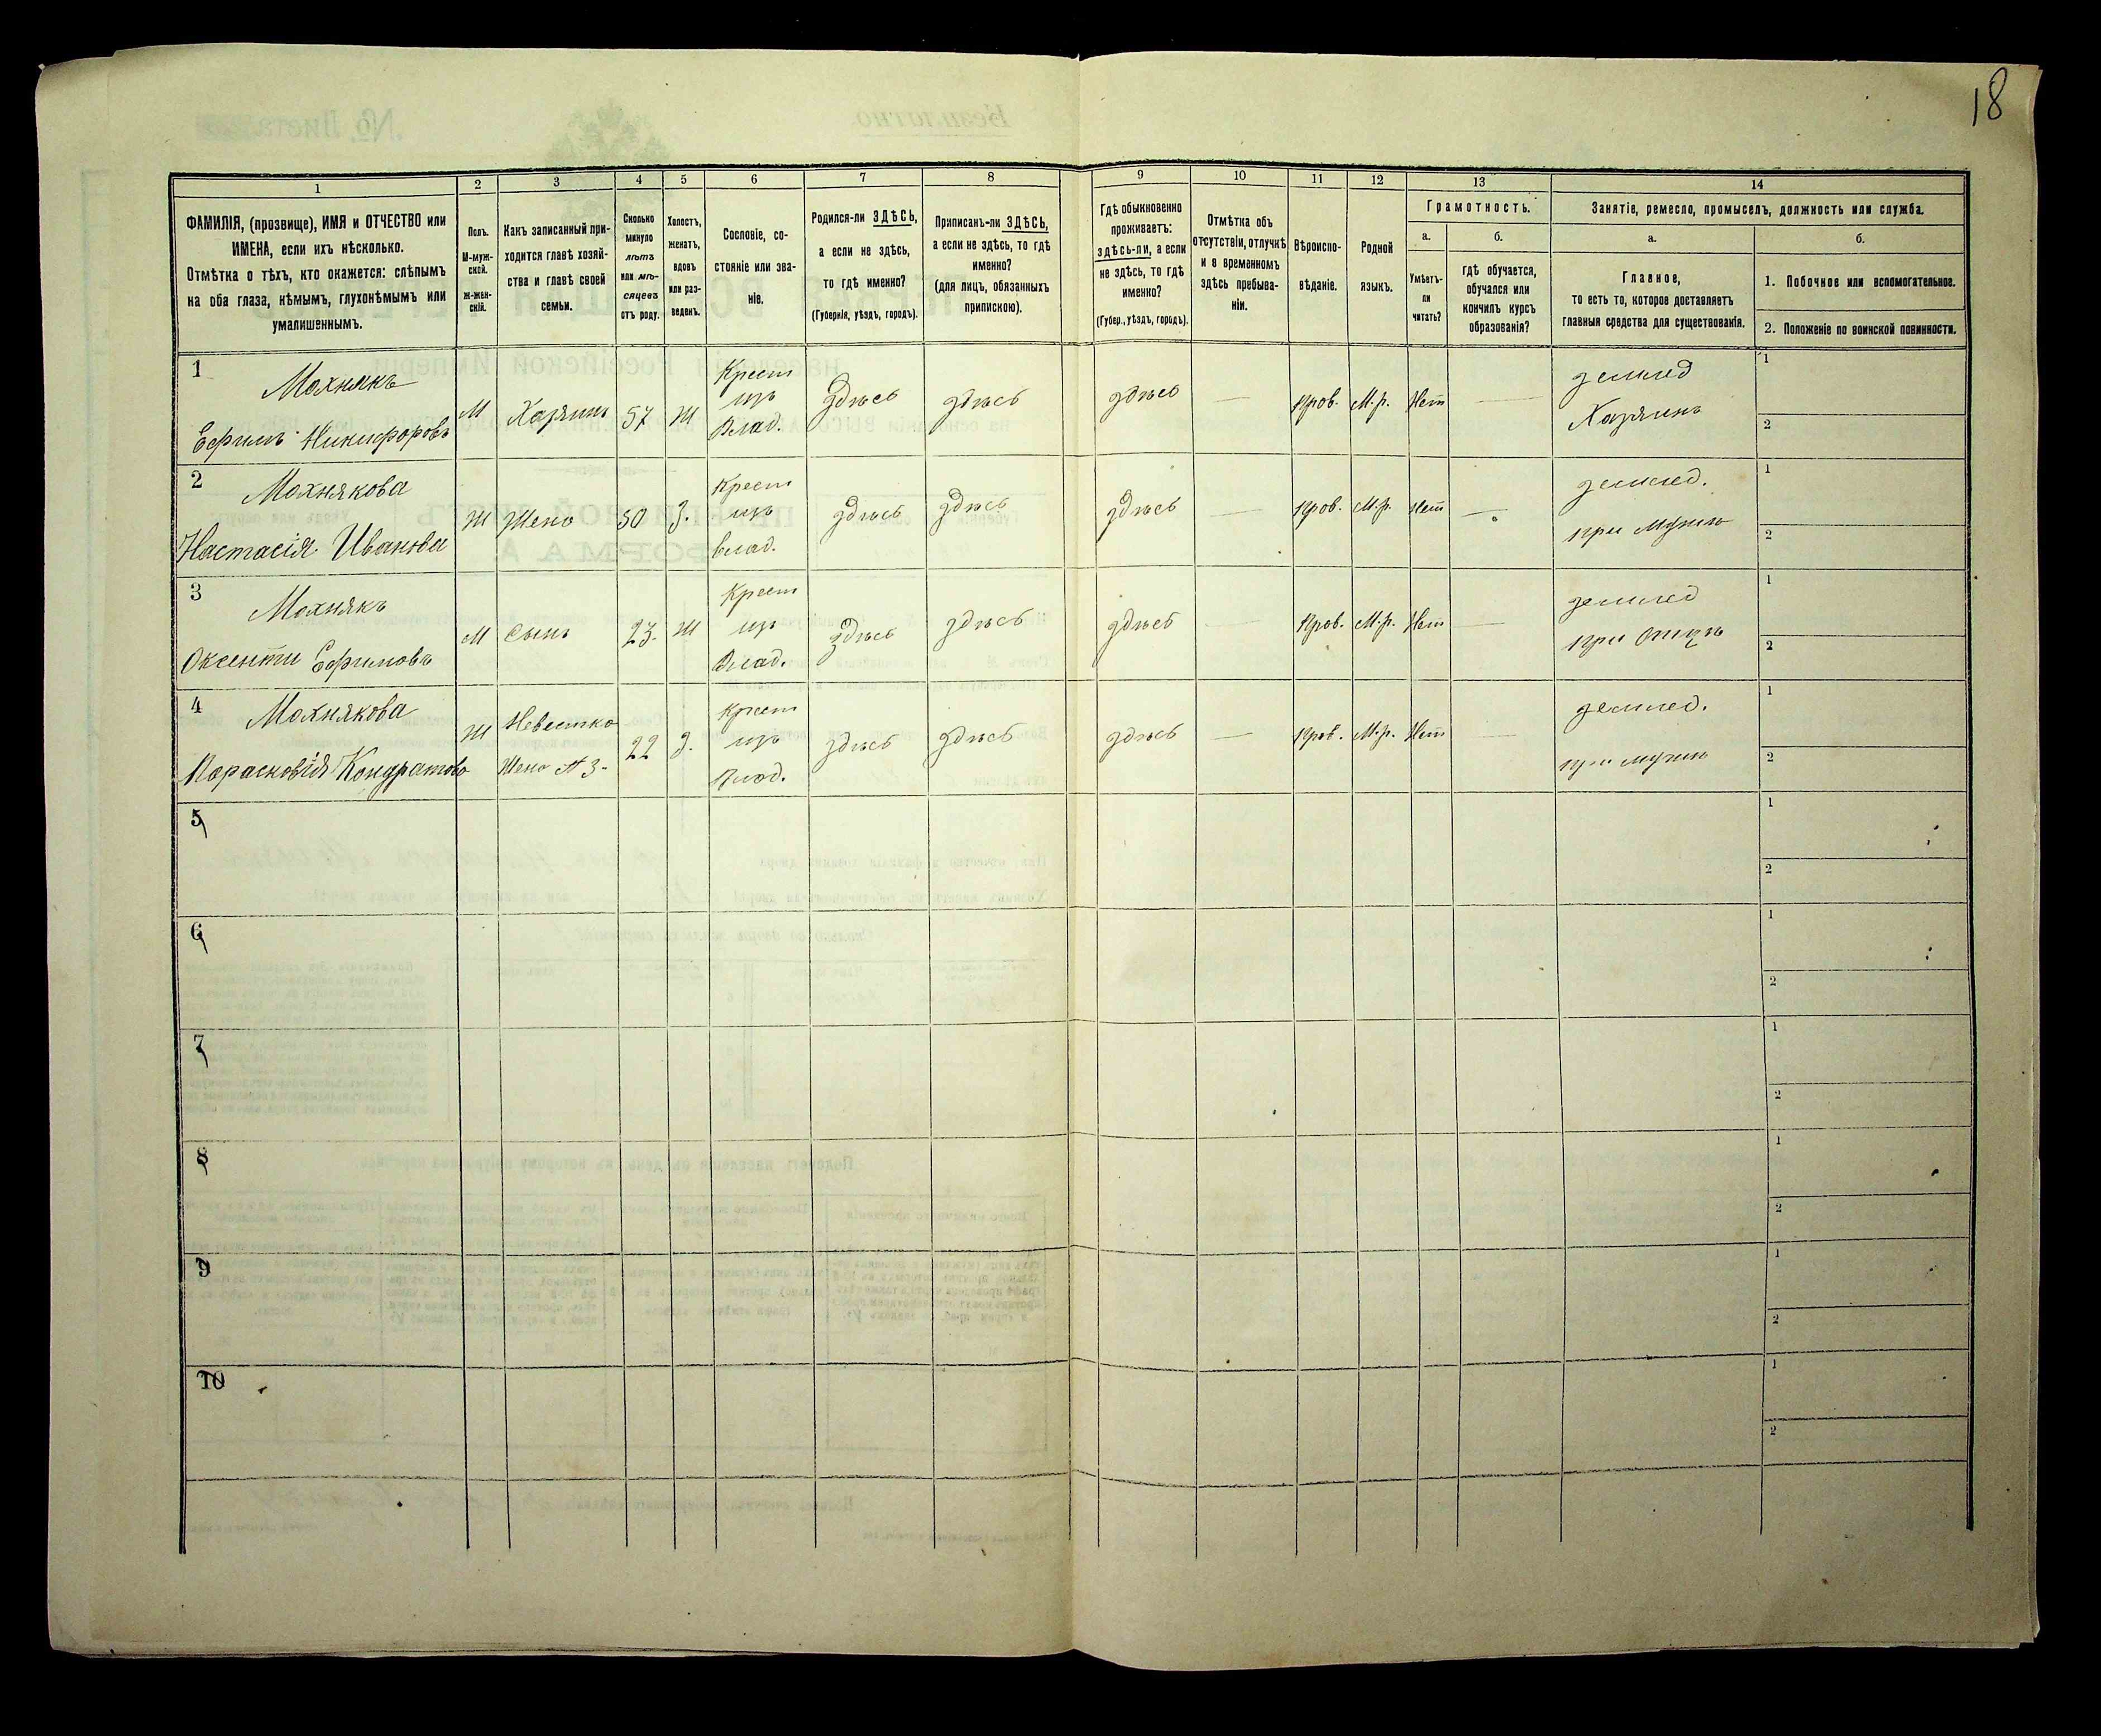 18
1 2 3 4 5 6 7 8 9 10 11 12 13 14
ФАМИЛІЯ, (прозвище), ИМЯ и ОТЧЕСТВО или
ИМЕНА, если ихъ нѣсколько.
Отмѣтка о тѣхъ, кто окажется: слѣпымъ
на оба глаза, нѣмымъ, глухонѣмымъ или
умалишеннымъ.
Полъ.
М-муж-
ской.
ж-жен-
скій.
Какъ записанный при-
ходится главѣ хозяй-
ства и главѣ своей
семьи.
Сколько
минуло
лѣтъ
или мѣ-
сяцевъ
отъ роду.
Холостъ,
женатъ,
вдовъ
или раз-
веденъ.
Сословіе, со-
стояніе или зва-
ніе.
Родился-ли ЗДѢСЬ,
а если не здѣсь,
то гдѣ именно?
(Губернія, уѣздъ, городъ).
Приписанъ-ли ЗДѢСЬ,
а если не здѣсь, то гдѣ
именно?
(для лицъ, обязанныхъ
припискою).
Гдѣ обыкновенно
проживаетъ:
здѣсь-ли, а если
не здѣсь, то гдѣ
именно?
(Губер., уѣздъ, городъ).
Отмѣтка объ
отсутствіи, отлучкѣ
и о временномъ
здѣсь пребыва-
ніи.
Вѣроиспо-
вѣданіе.
Родной
языкъ.
Грамотность.
а.
Умѣетъ-
ли
читать?
б.
гдѣ обучается,
обучался или
кончилъ курсъ
образованія?
Занятіе, ремесло, промыселъ, должность или служба.
а.
Главное,
то есть то, которое доставляетъ
главныя средства для существованія.
б.
1. Побочное или вспомогательное.
2. Положеніе по воинской повинности.
1
Махнякъ
Ефимъ Никифоровъ
М
Хазяинъ
57
Ж
Крест
изъ
Влад.
здѣсь
здѣсь
здѣсь
—
Прав.
М.р.
Нет
—
землед
Хазяинъ
1
2
2
Махнякова
Настасія Иванова
Ж
Жена
50
З.
Крест
изъ
влад.
здѣсь
здѣсь
здѣсь
—
Прав.
М.р.
Нет
—
землед.
при Мужѣ
1
2
3
Махнякъ
Оксенти Ефимовъ
М
Сынъ
23.
Ж
Крест
изъ
Влад.
здѣсь
здѣсь
здѣсь
—
Прав.
М.р.
Нет
—
землед
при Отцѣ
1
2
4
Махнякова
Парасковія Кондратова
Ж
Невестка
Жена № 3.
22
З.
Крест
изъ
Влад.
здѣсь
здѣсь
здѣсь
—
Прав.
М.р.
Нет
—
землед.
при мужѣ
1
2
5
1
2
6
1
2
7
1
2
8
1
2
9
1
2
10
1
2